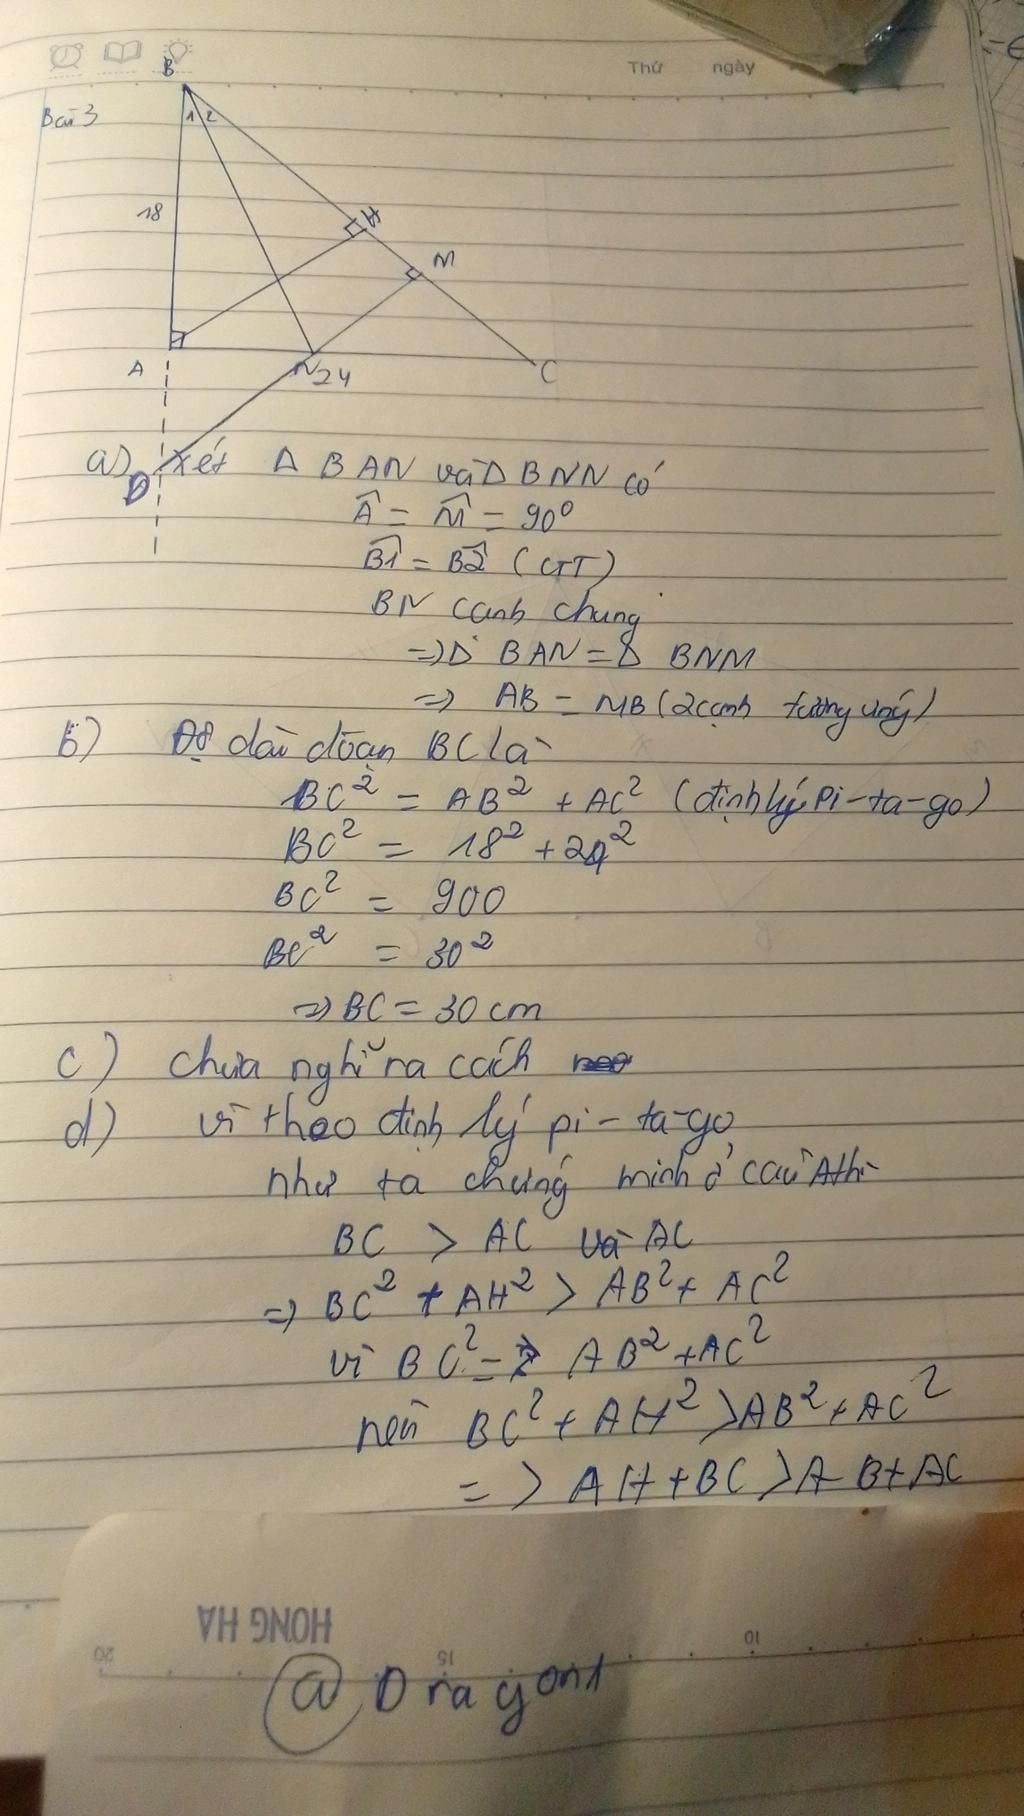 Thứ ngày
B
Bài 3
1 2
18
H
M
A
N 24
C
D
a) Xét Δ BAN và Δ BNN có
Â = M̂ = 90⁰
B̂1 = B̂2 (GT)
BN cạnh chung
=> Δ BAN = Δ BNM
=> AB = MB (2 cạnh tương ứng)
b) Độ dài đoạn BC là
BC² = AB² + AC² (định lý Pi-ta-go)
BC² = 18² + 24²
BC² = 900
BC² = 30²
=> BC = 30 cm
c) chưa nghĩ ra cách
d) vì theo định lý pi-ta-go
như ta chứng minh ở câu A thì
BC > AC và AC
=> BC² + AH² > AB² + AC²
vì BC² = AB² + AC²
nên BC² + AH² > AB² + AC²
=> AH + BC > AB + AC
HONG HA
20 15 10
@ Dragon1